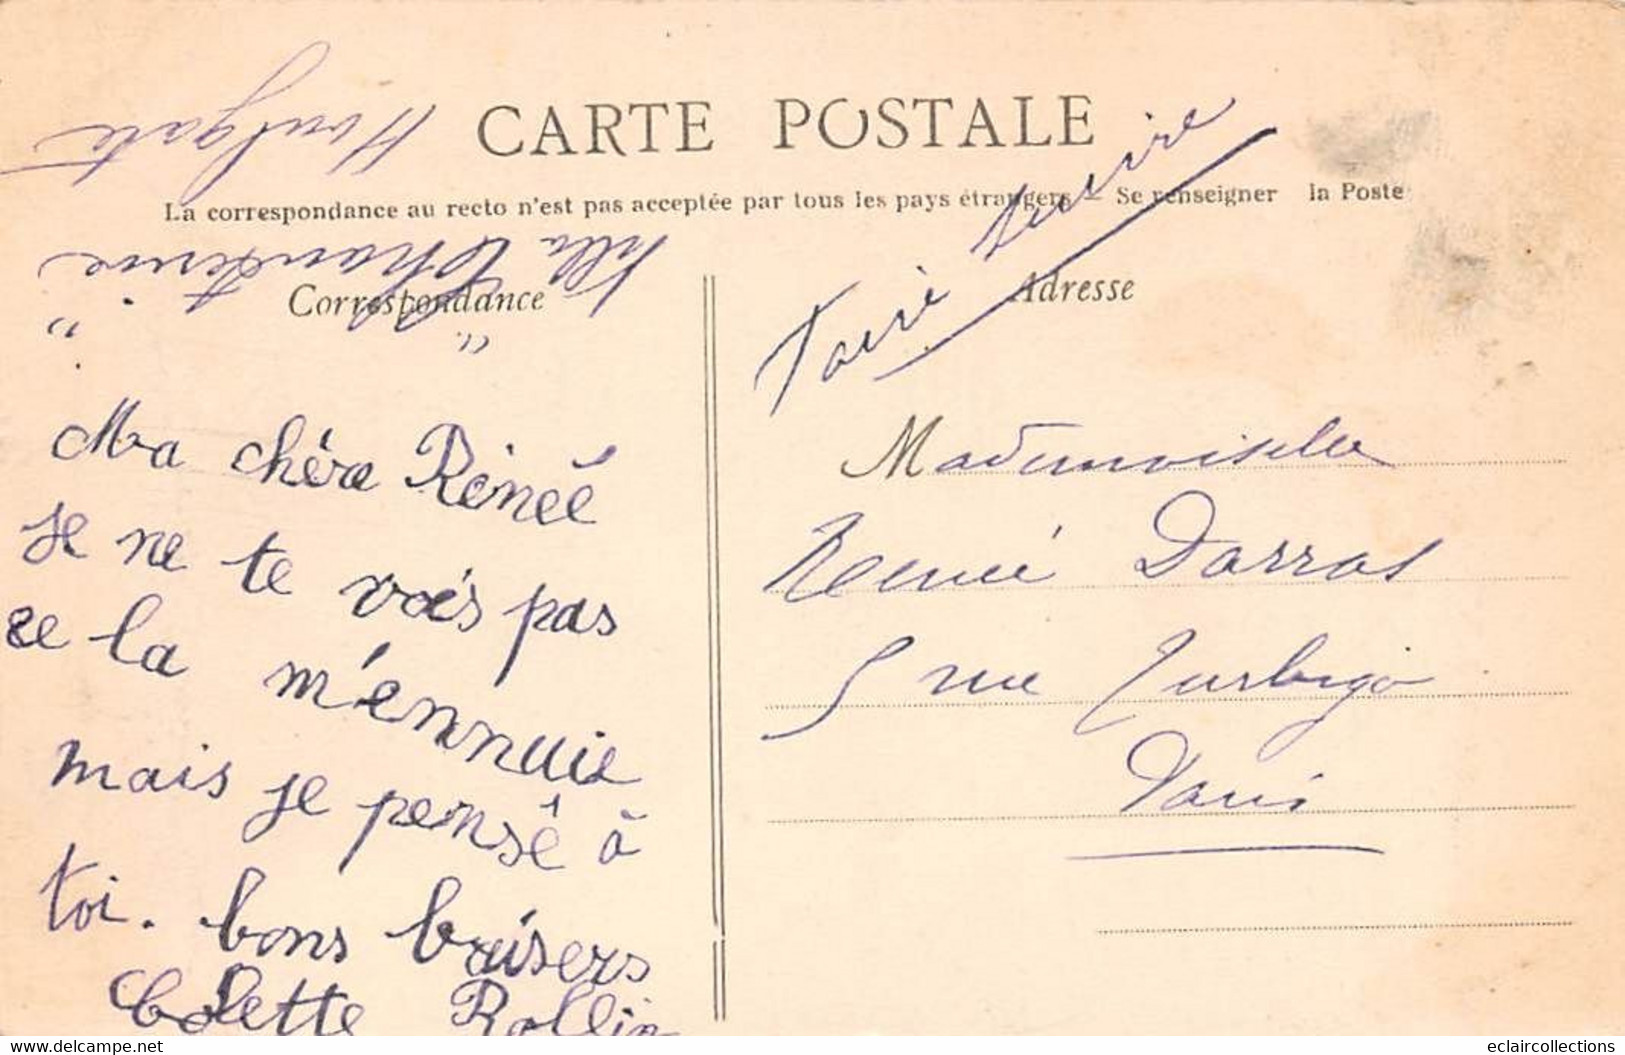 CARTE POSTALE
La correspondance au recto n'est pas acceptée par tous les pays étrangers – Se renseigner la Poste
Houlgate
Villa
Correspondance
Faire suivre
Adresse
Ma chère Rénéé
je ne te vois pas
ce la m'ennuie
mais je pensê à
toi. bons baisers
Colette Rollin
Mademoiselle
Renée Darras
5 rue Turbigo
Paris
www.delcampe.net
eclaircollections